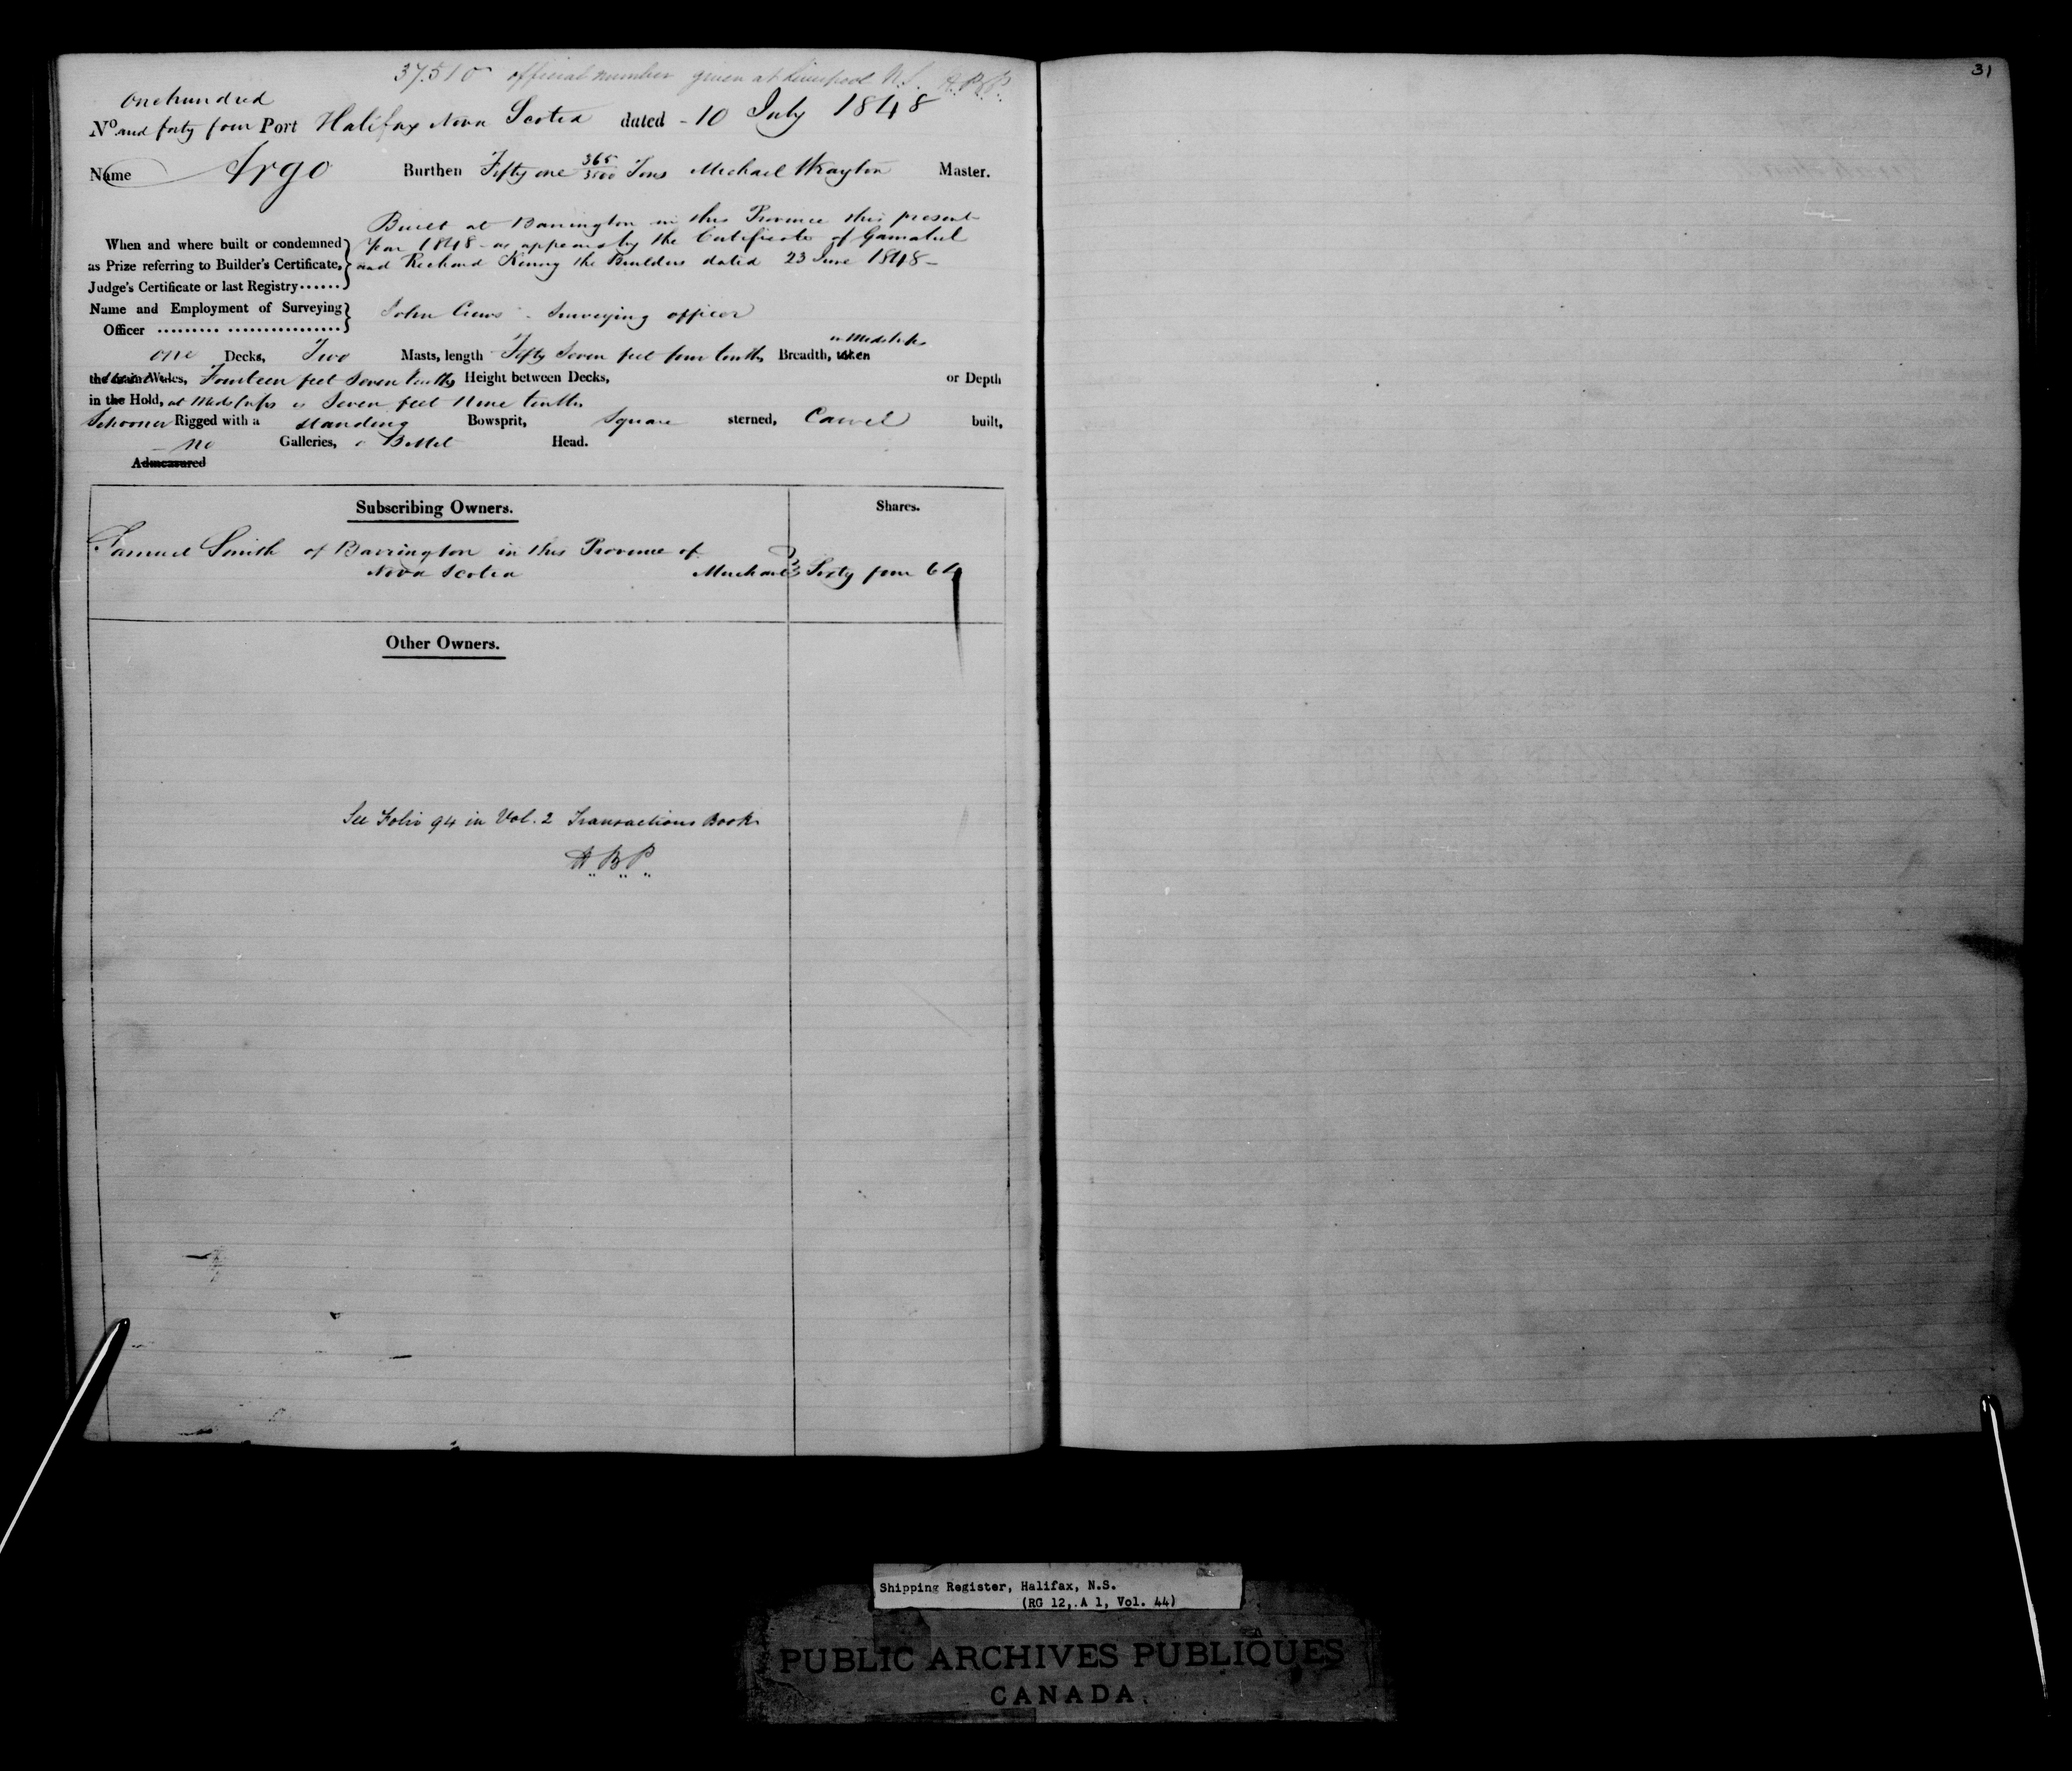 37.510 official number given at Liverpool N.S. A.B.P.
31
One hundred
No and forty four Port Halifax Nova Scotia dated - 10 July 1848
Name Argo Burthen Fifty one 365/3500 Tons Michael Wrayton Master.
Built at Barrington in this Province this present
When and where built or condemned year 1848 - as appears by the Certificate of Gamaliel
as Prize referring to Builder's Certificate, and Richard Kenny the Builders dated 23 June 1848 -
Judge's Certificate or last Registry......
Name and Employment of Surveying John Crews - Surveying officer
Officer
in Midships
One Decks, Two Masts, length Fifty Seven feet four tenths Breadth, taken
the Main Wales, Fourteen feet Seven tenths Height between Decks, or Depth
in the Hold, at Midships is Seven feet Nine tenths
Schooner Rigged with a standing Bowsprit, Square sterned, Carvel built,
no Galleries, Billet Head.
Admeasured
Subscribing Owners. Shares.
Samuel Smith of Barrington in this Province of
Nova Scotia Merchant Sixty four 64
Other Owners.
See Folio 94 in Vol. 2 Transactions Book
A.B.P.
Shipping Register, Halifax, N.S.
(RG 12, A 1, Vol. 44)
PUBLIC ARCHIVES PUBLIQUES
CANADA